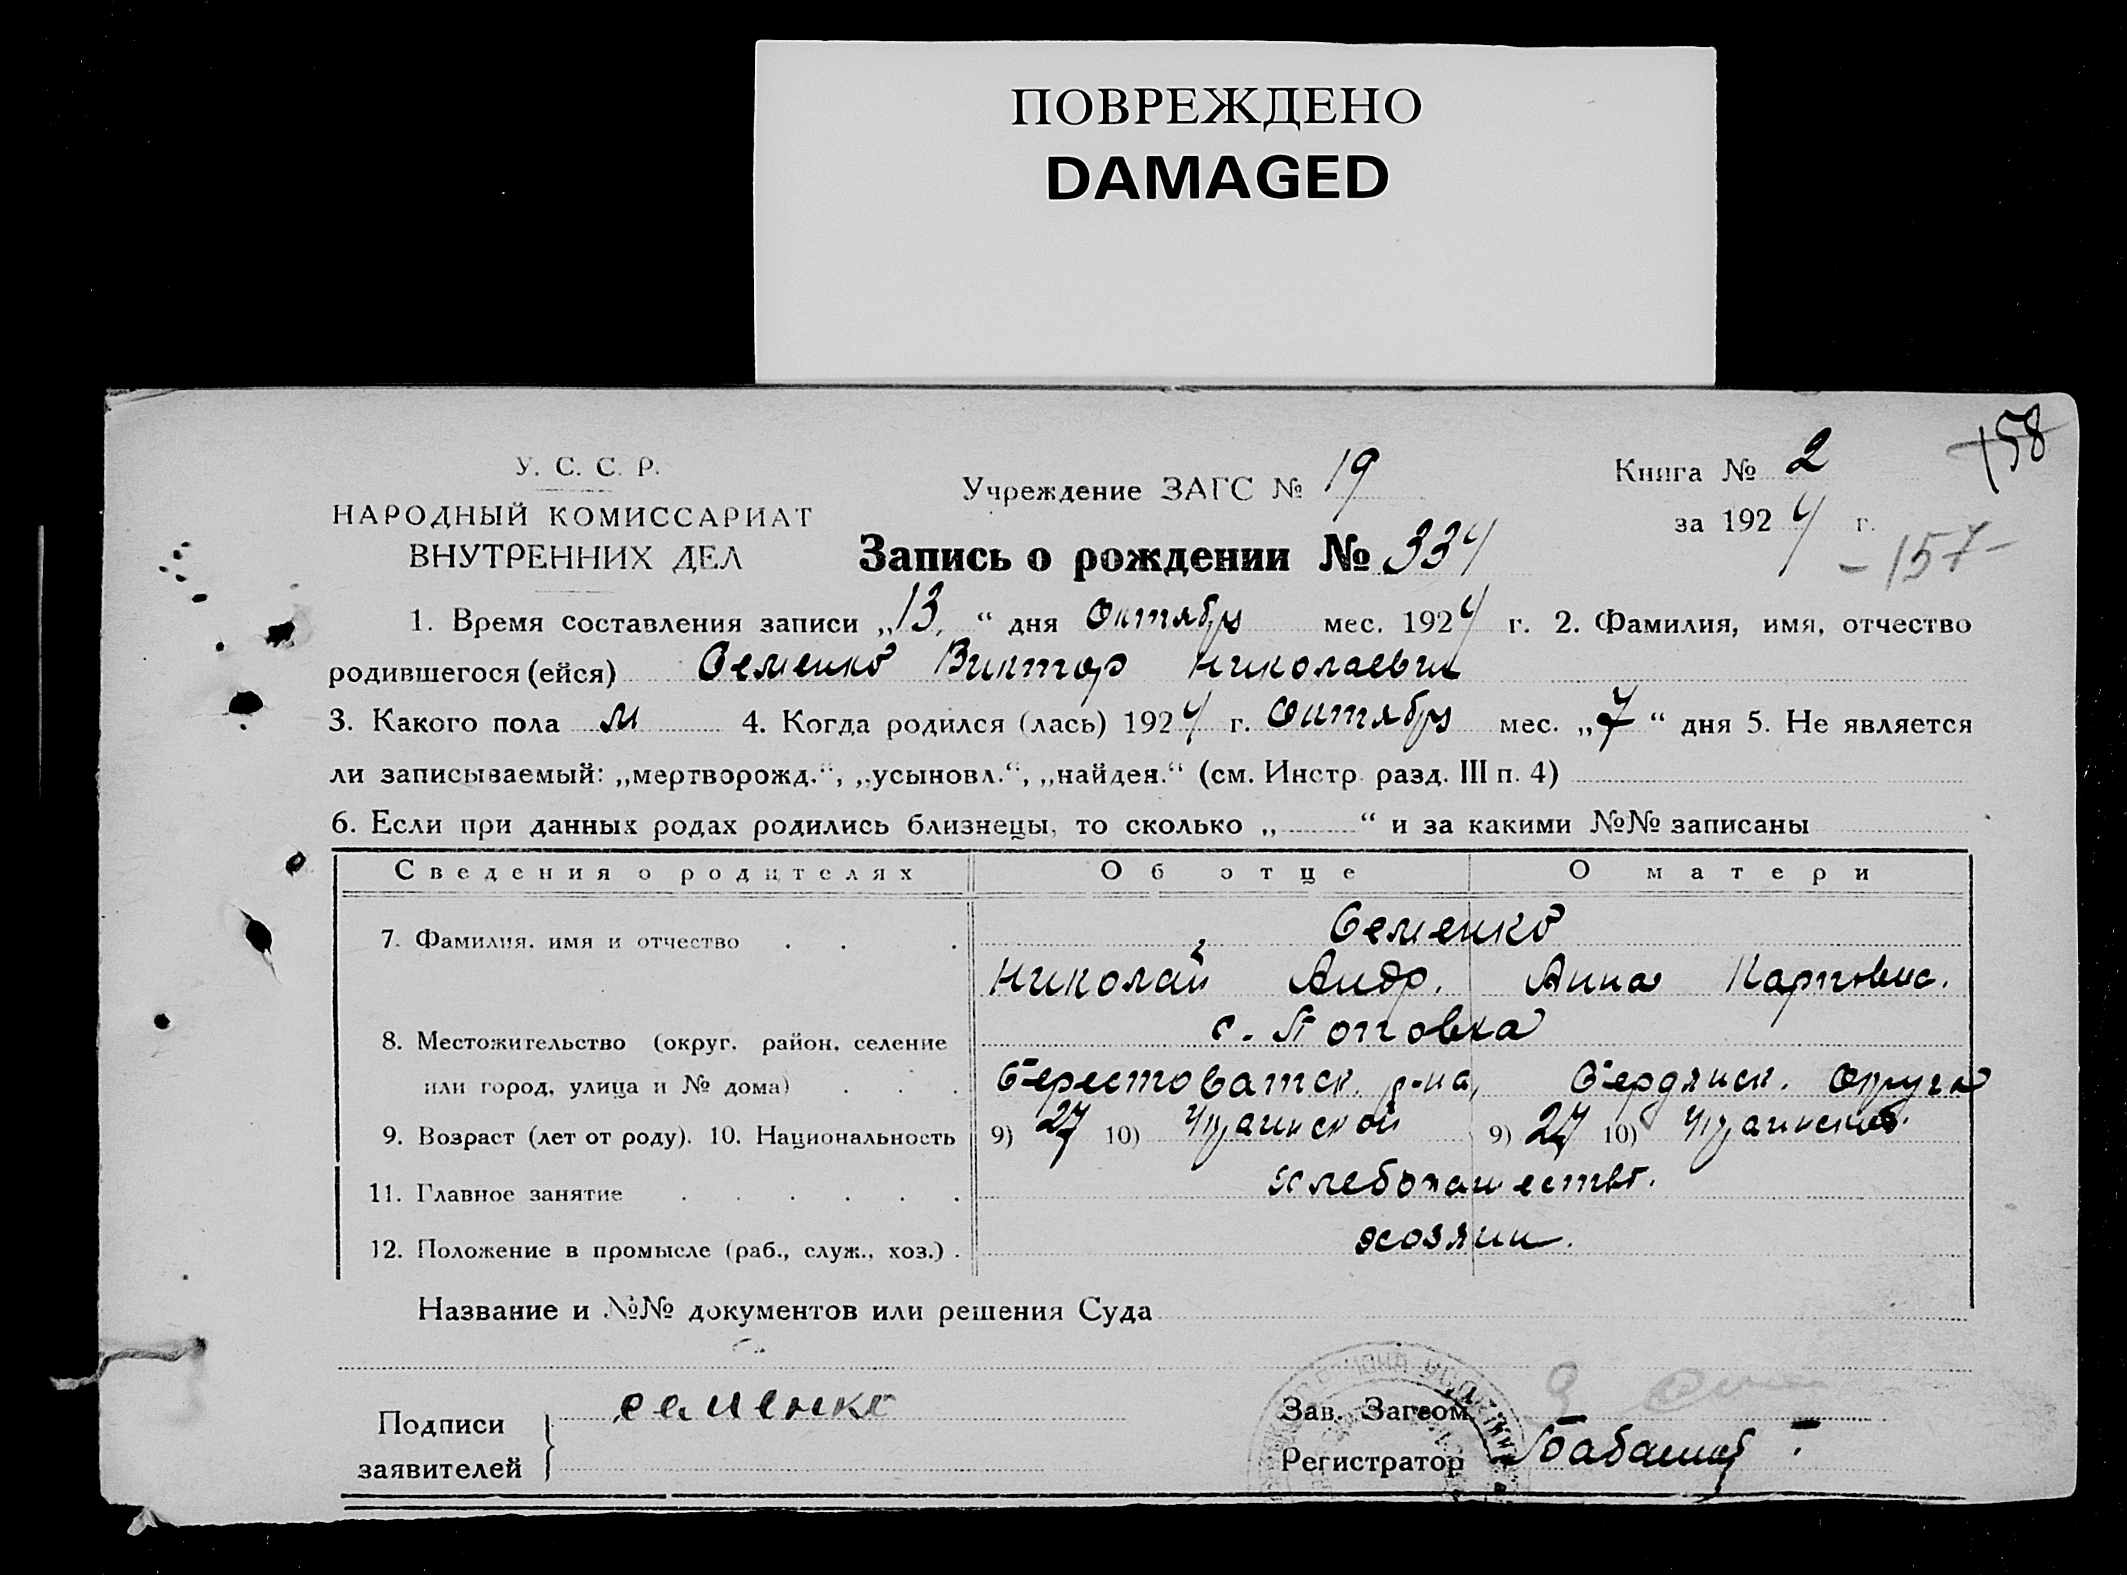 ПОВРЕЖДЕНО
DAMAGED
158
У. С. С. Р.
НАРОДНЫЙ КОМИССАРИАТ
ВНУТРЕННИХ ДЕЛ
Учреждение ЗАГС № 19
Книга № 2
за 1924 г.
- 157 -
Запись о рождении № 334
1. Время составления записи „13“ дня Октября мес. 1924 г. 2. Фамилия, имя, отчество
родившегося (ейся) Семенко Виктор Николаевич
3. Какого пола м 4. Когда родился (лась) 1924 г. Октября мес. „7“ дня 5. Не является
ли записываемый: „мертворожд.“, „усыновл.“, „найден.“ (см. Инстр. разд. III п. 4)
6. Если при данных родах родились близнецы, то сколько „ “ и за какими №№ записаны
Сведения о родителях Об отце О матери
7. Фамилия, имя и отчество Семенко
Николай Андр. Анна Карповна.
8. Местожительство (округ, район, селение с. Поповка
или город, улица и № дома) Берестоватск. р-на, Бердянск. Округа
9. Возраст (лет от роду). 10. Национальность 9) 27 10) Украинской 9) 27 10) Украинской
11. Главное занятие хлебопашество.
12. Положение в промысле (раб., служ., хоз.) хозяин.
Название и №№ документов или решения Суда
Подписи
заявителей
Семенко
Зав. Загсом
Регистратор